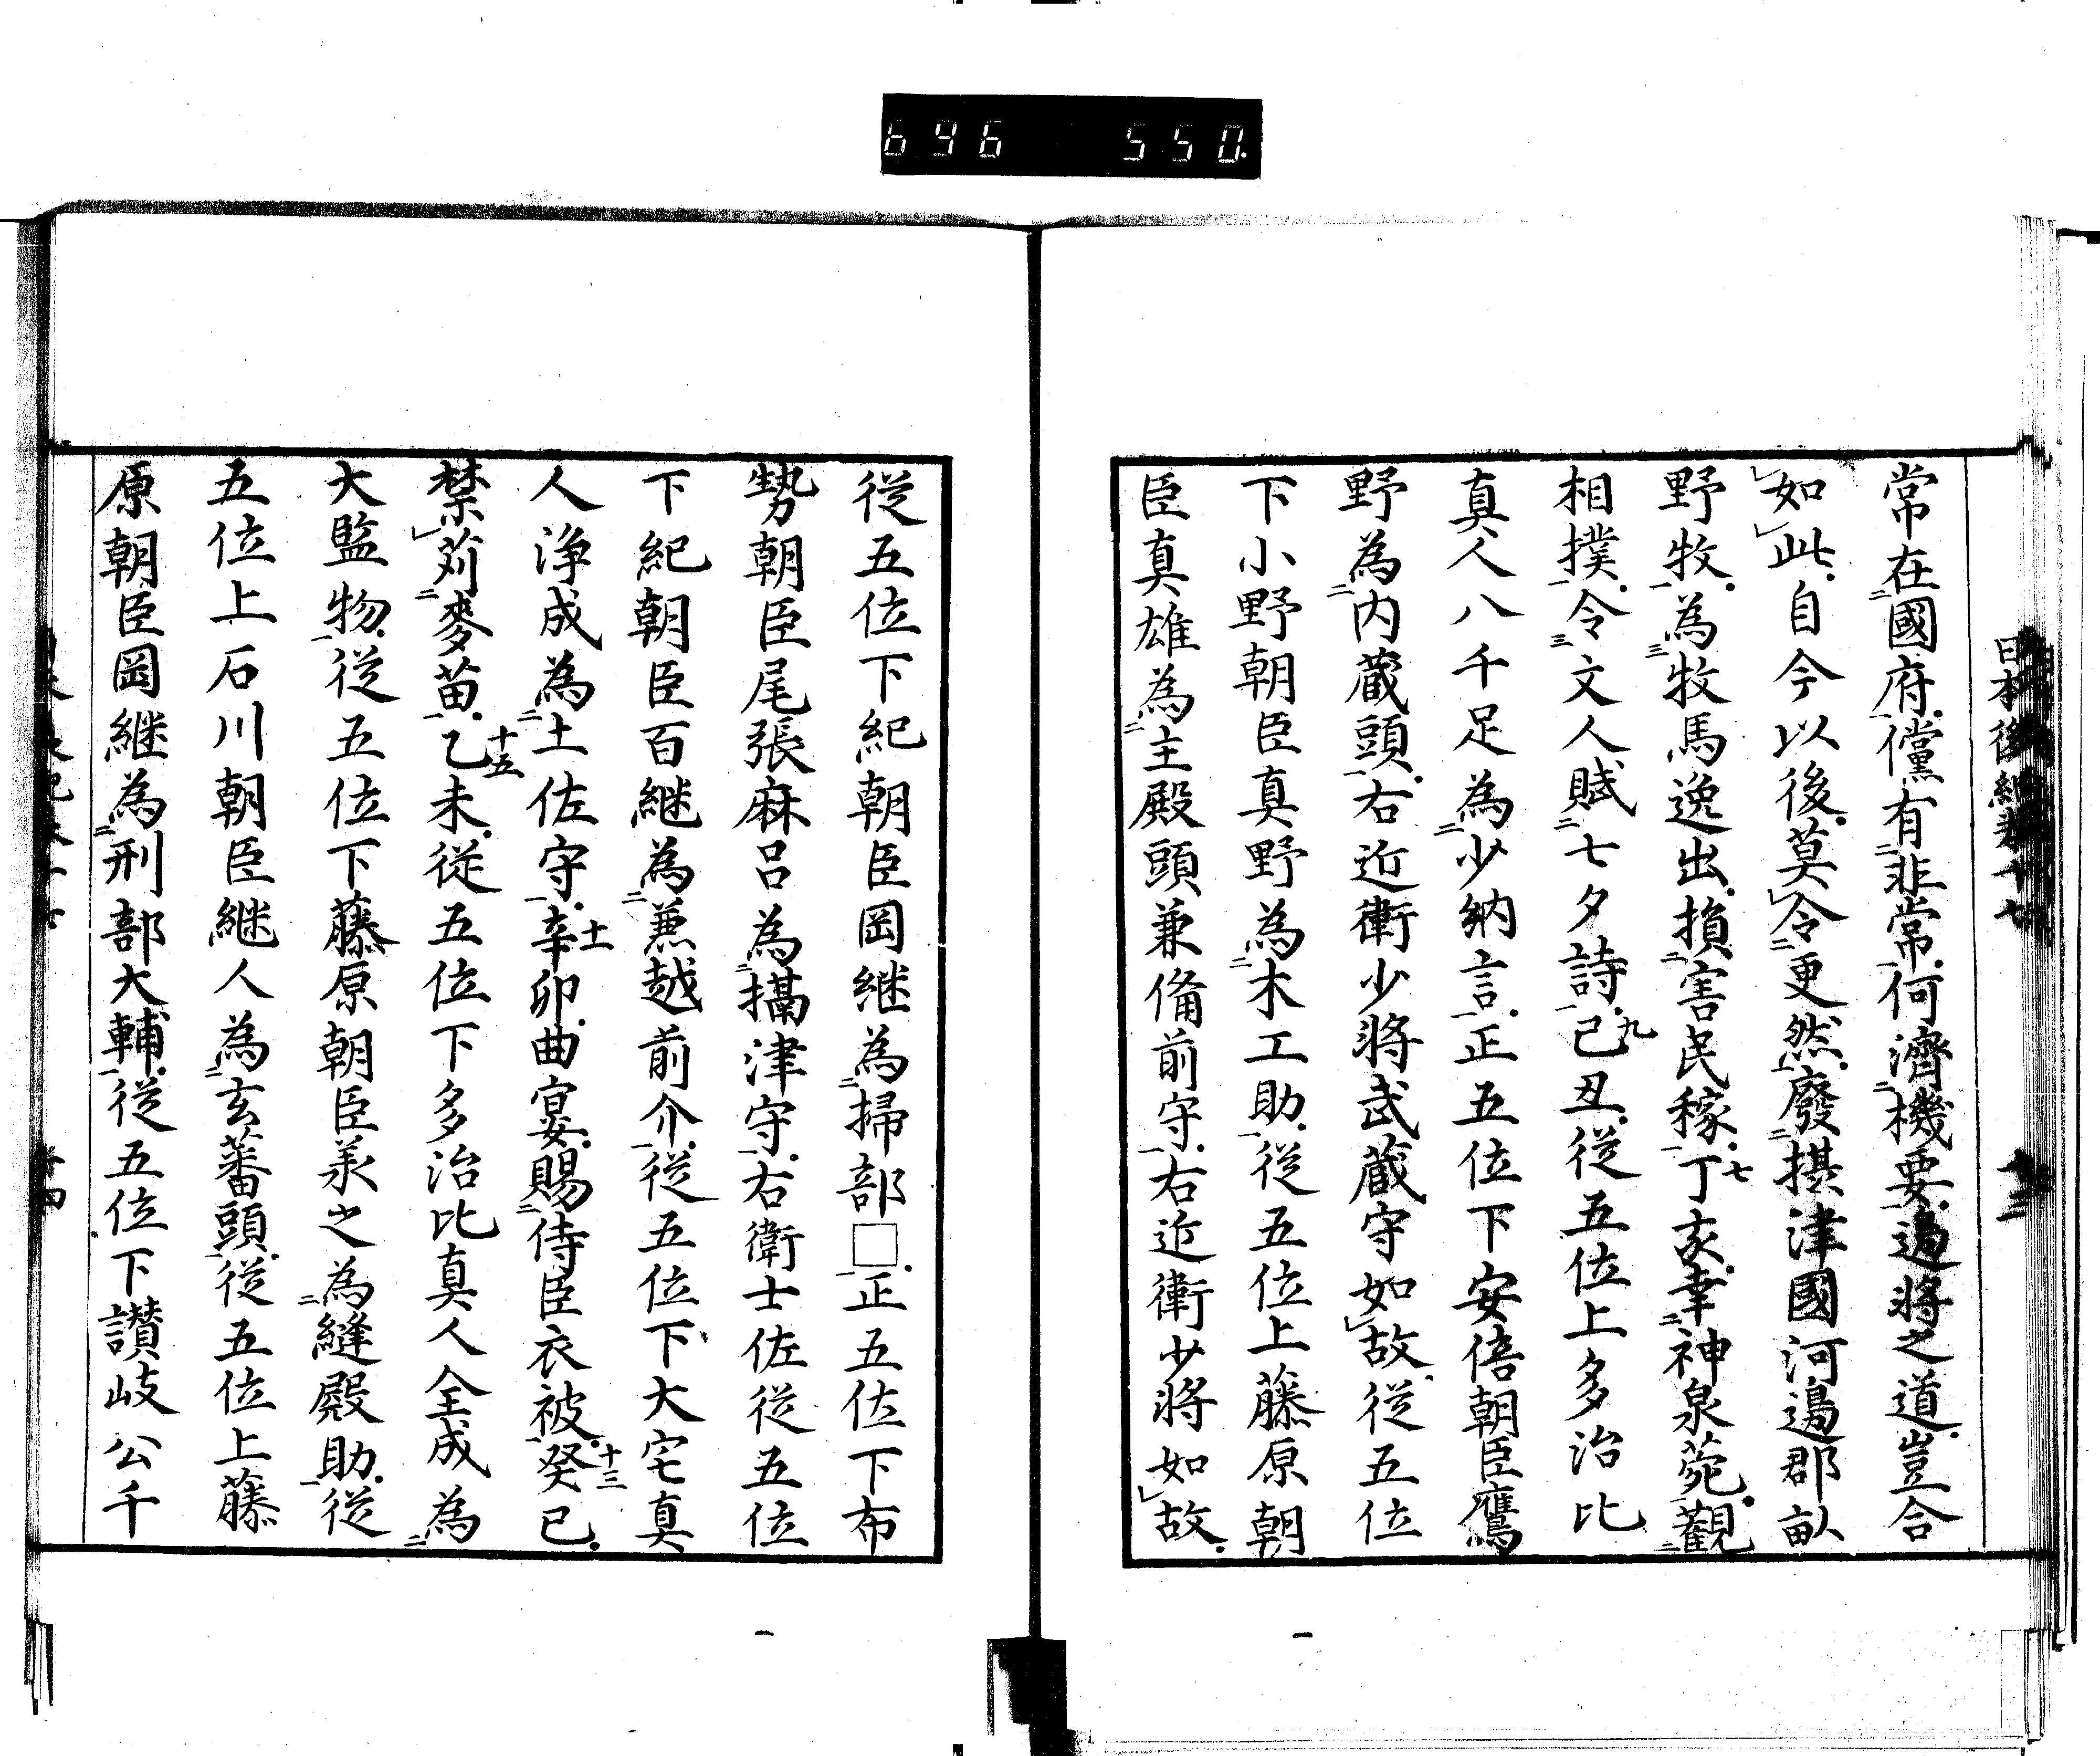 696 550.
日本後紀卷十七
常在國府儻有非常何濟機要邊將之道豈合
如此自今以後莫令更然廢攝津國河邊郡畝
野牧為牧馬逸出損害民稼七丁亥幸神泉苑觀
相撲令文人賦七夕詩九己丑從五位上多治比
真人八千足為少納言正五位下安倍朝臣鷹
野為内蔵頭右近衛少將武蔵守如故從五位
下小野朝臣真野為木工助從五位上藤原朝
臣真雄為主殿頭兼備前守右近衛少將如故
從五位下紀朝臣岡継為掃部□正五位下布
勢朝臣尾張麻呂為攝津守右衛士佐從五位
下紀朝臣百継為兼越前介從五位下大宅真
人浄成為土佐守十一辛卯曲宴賜侍臣衣被十三癸已
禁苅麥苗十五乙未從五位下多治比真人全成為
大監物從五位下藤原朝臣承之為縫殿助從
五位上石川朝臣継人為玄蕃頭從五位上藤
原朝臣岡継為刑部大輔從五位下讃岐公千